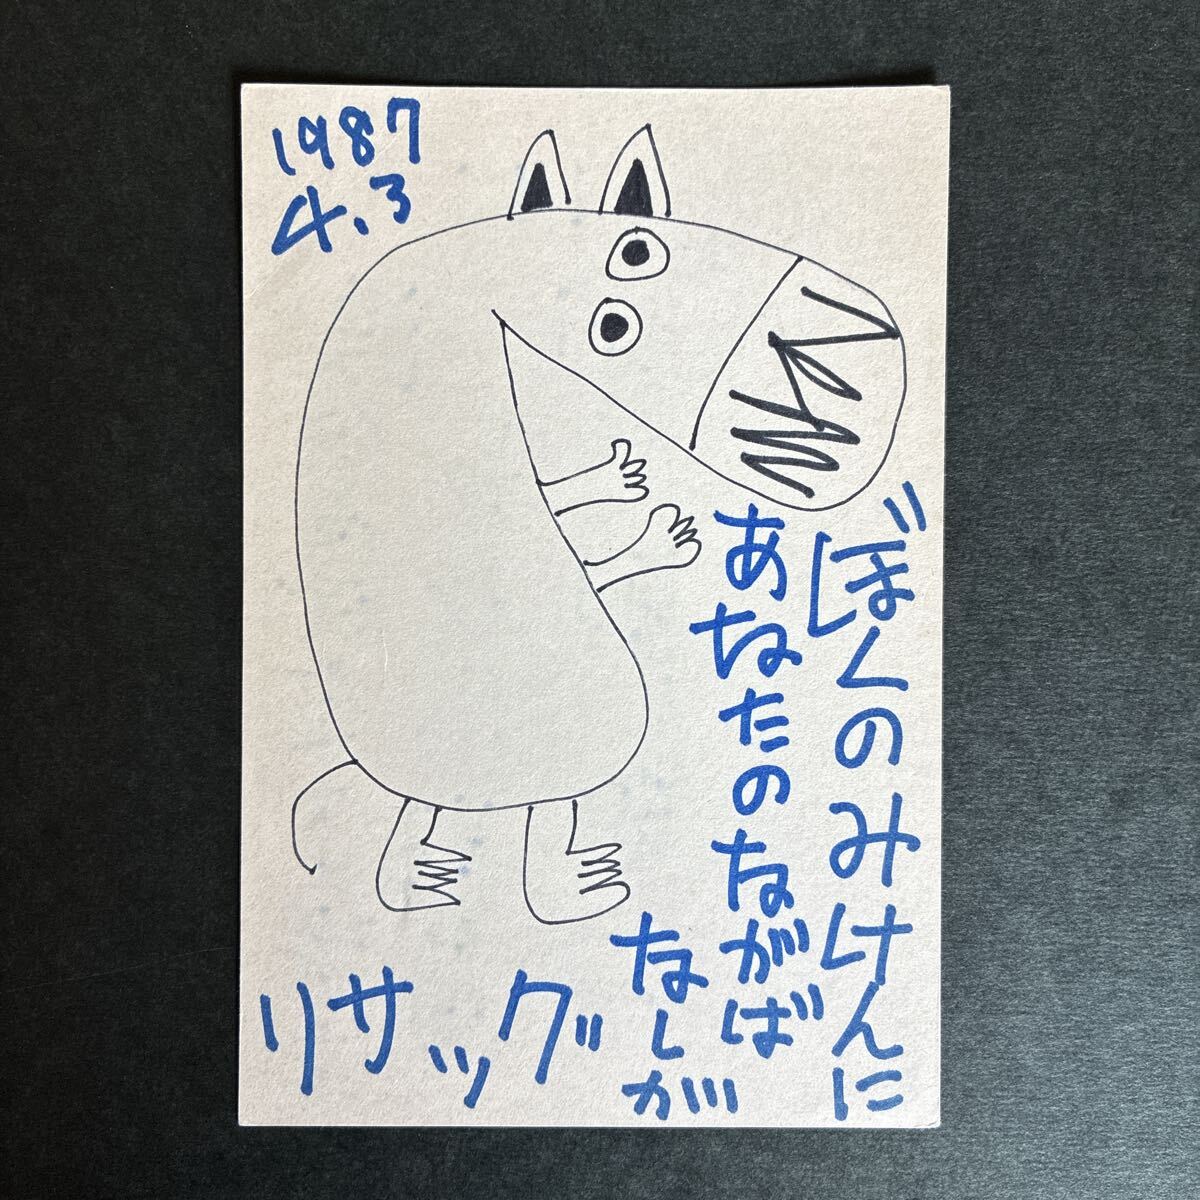 1987
4.3
ぼくのみけんに
あなたのながば
なしが
リサッグ